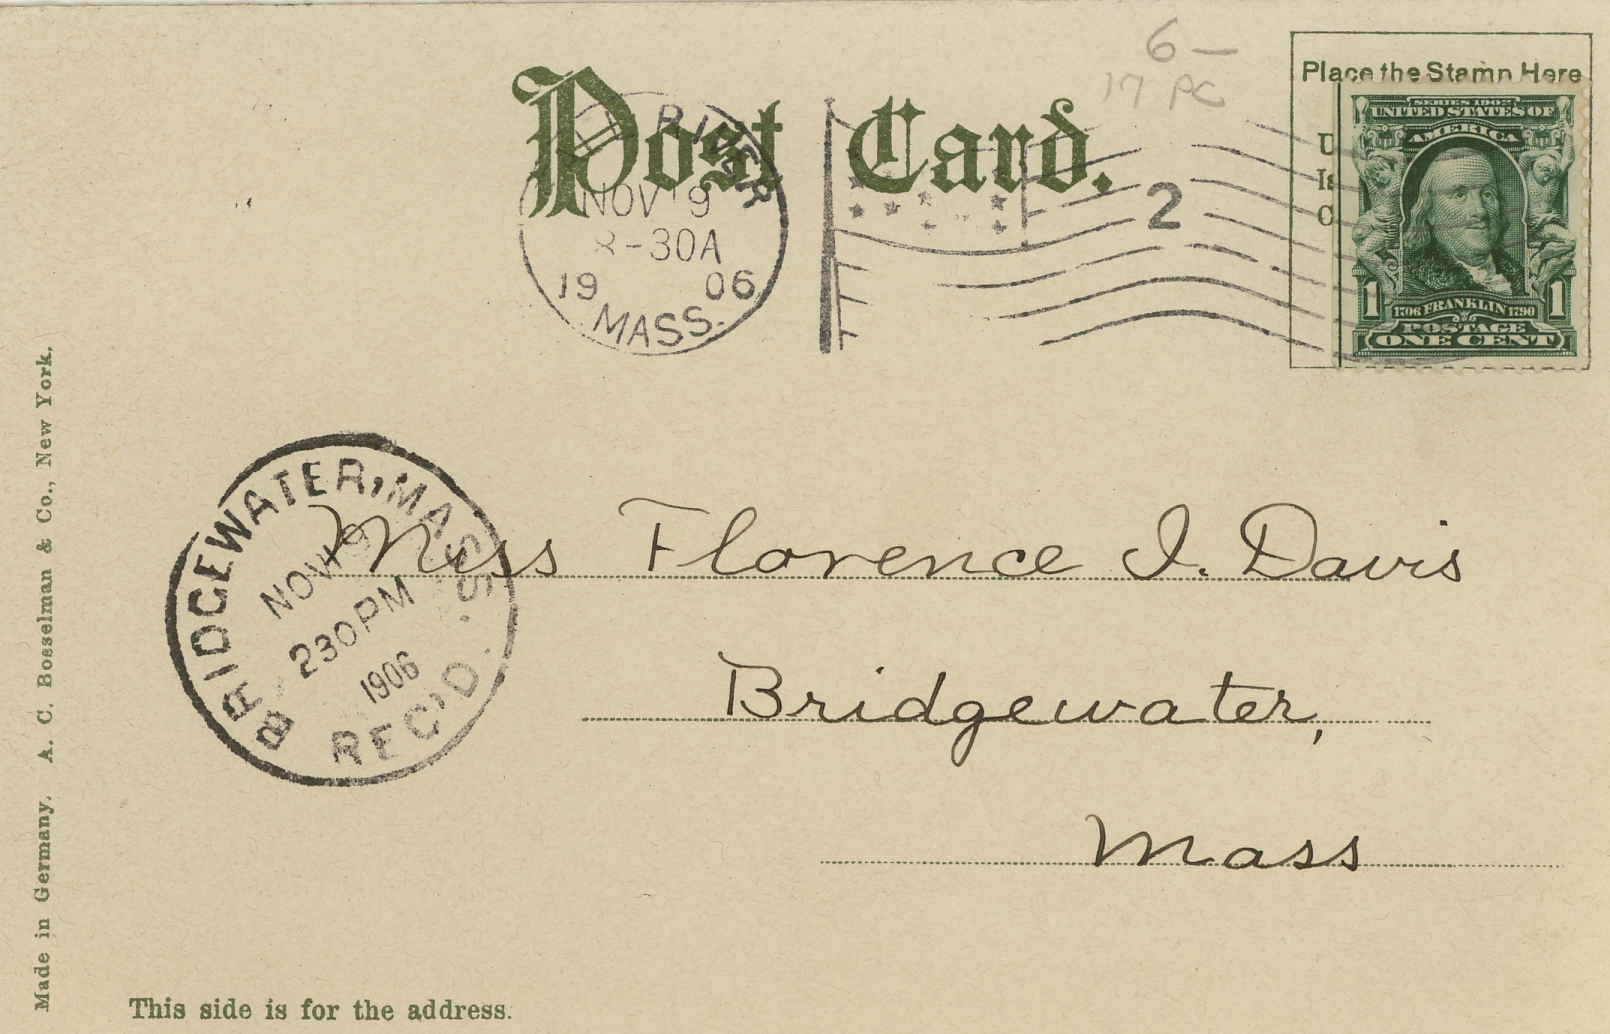 6 —
17 PC
Post Card.
Place the Stamp Here
U
Is
C
SERIES 1902
UNITED STATES OF
AMERICA
1 1706 FRANKLIN 1790 1
POSTAGE
ONE CENT
RIVER
NOV 19
8-30A
19 06
MASS.
2
BRIDGEWATER, MASS.
NOV 19
230PM
1906
REC'D.
Miss Florence I. Davis
Bridgewater,
Mass
Made in Germany. A. C. Bosselman & Co., New York.
This side is for the address.